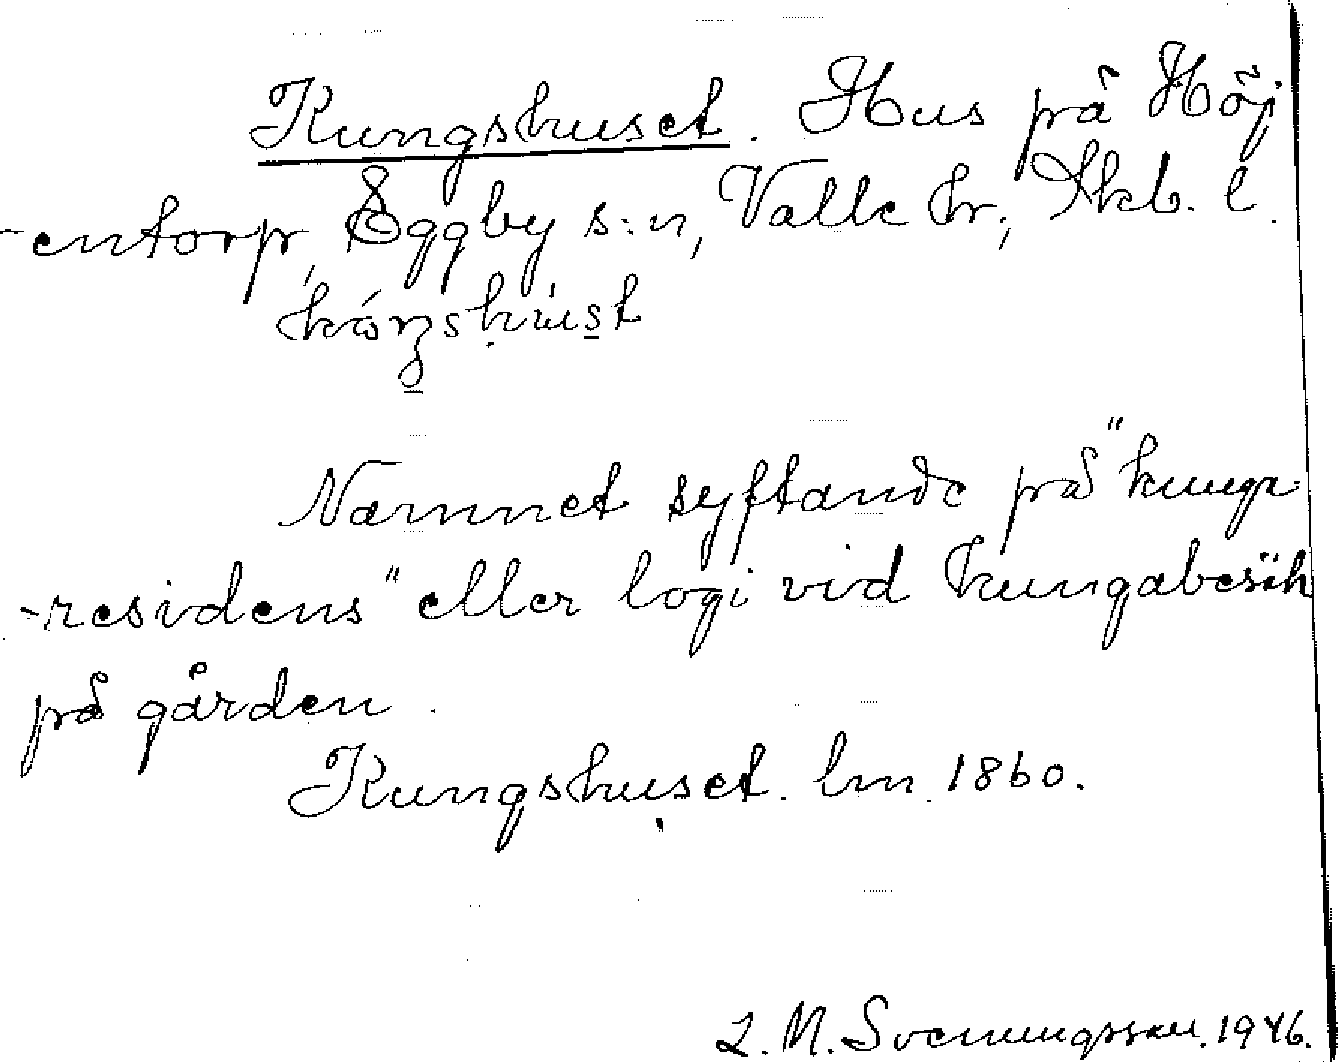 Kungshuset. Hus på Höj
-entorp, Eggby s:n, Valle hr; Skb. l.
Namnet syftande på "kungs-
-residens" eller logi vid kungabesök
på gården.
Kungshuset. lm. 1860.
L. M. Svenungsson. 1946.